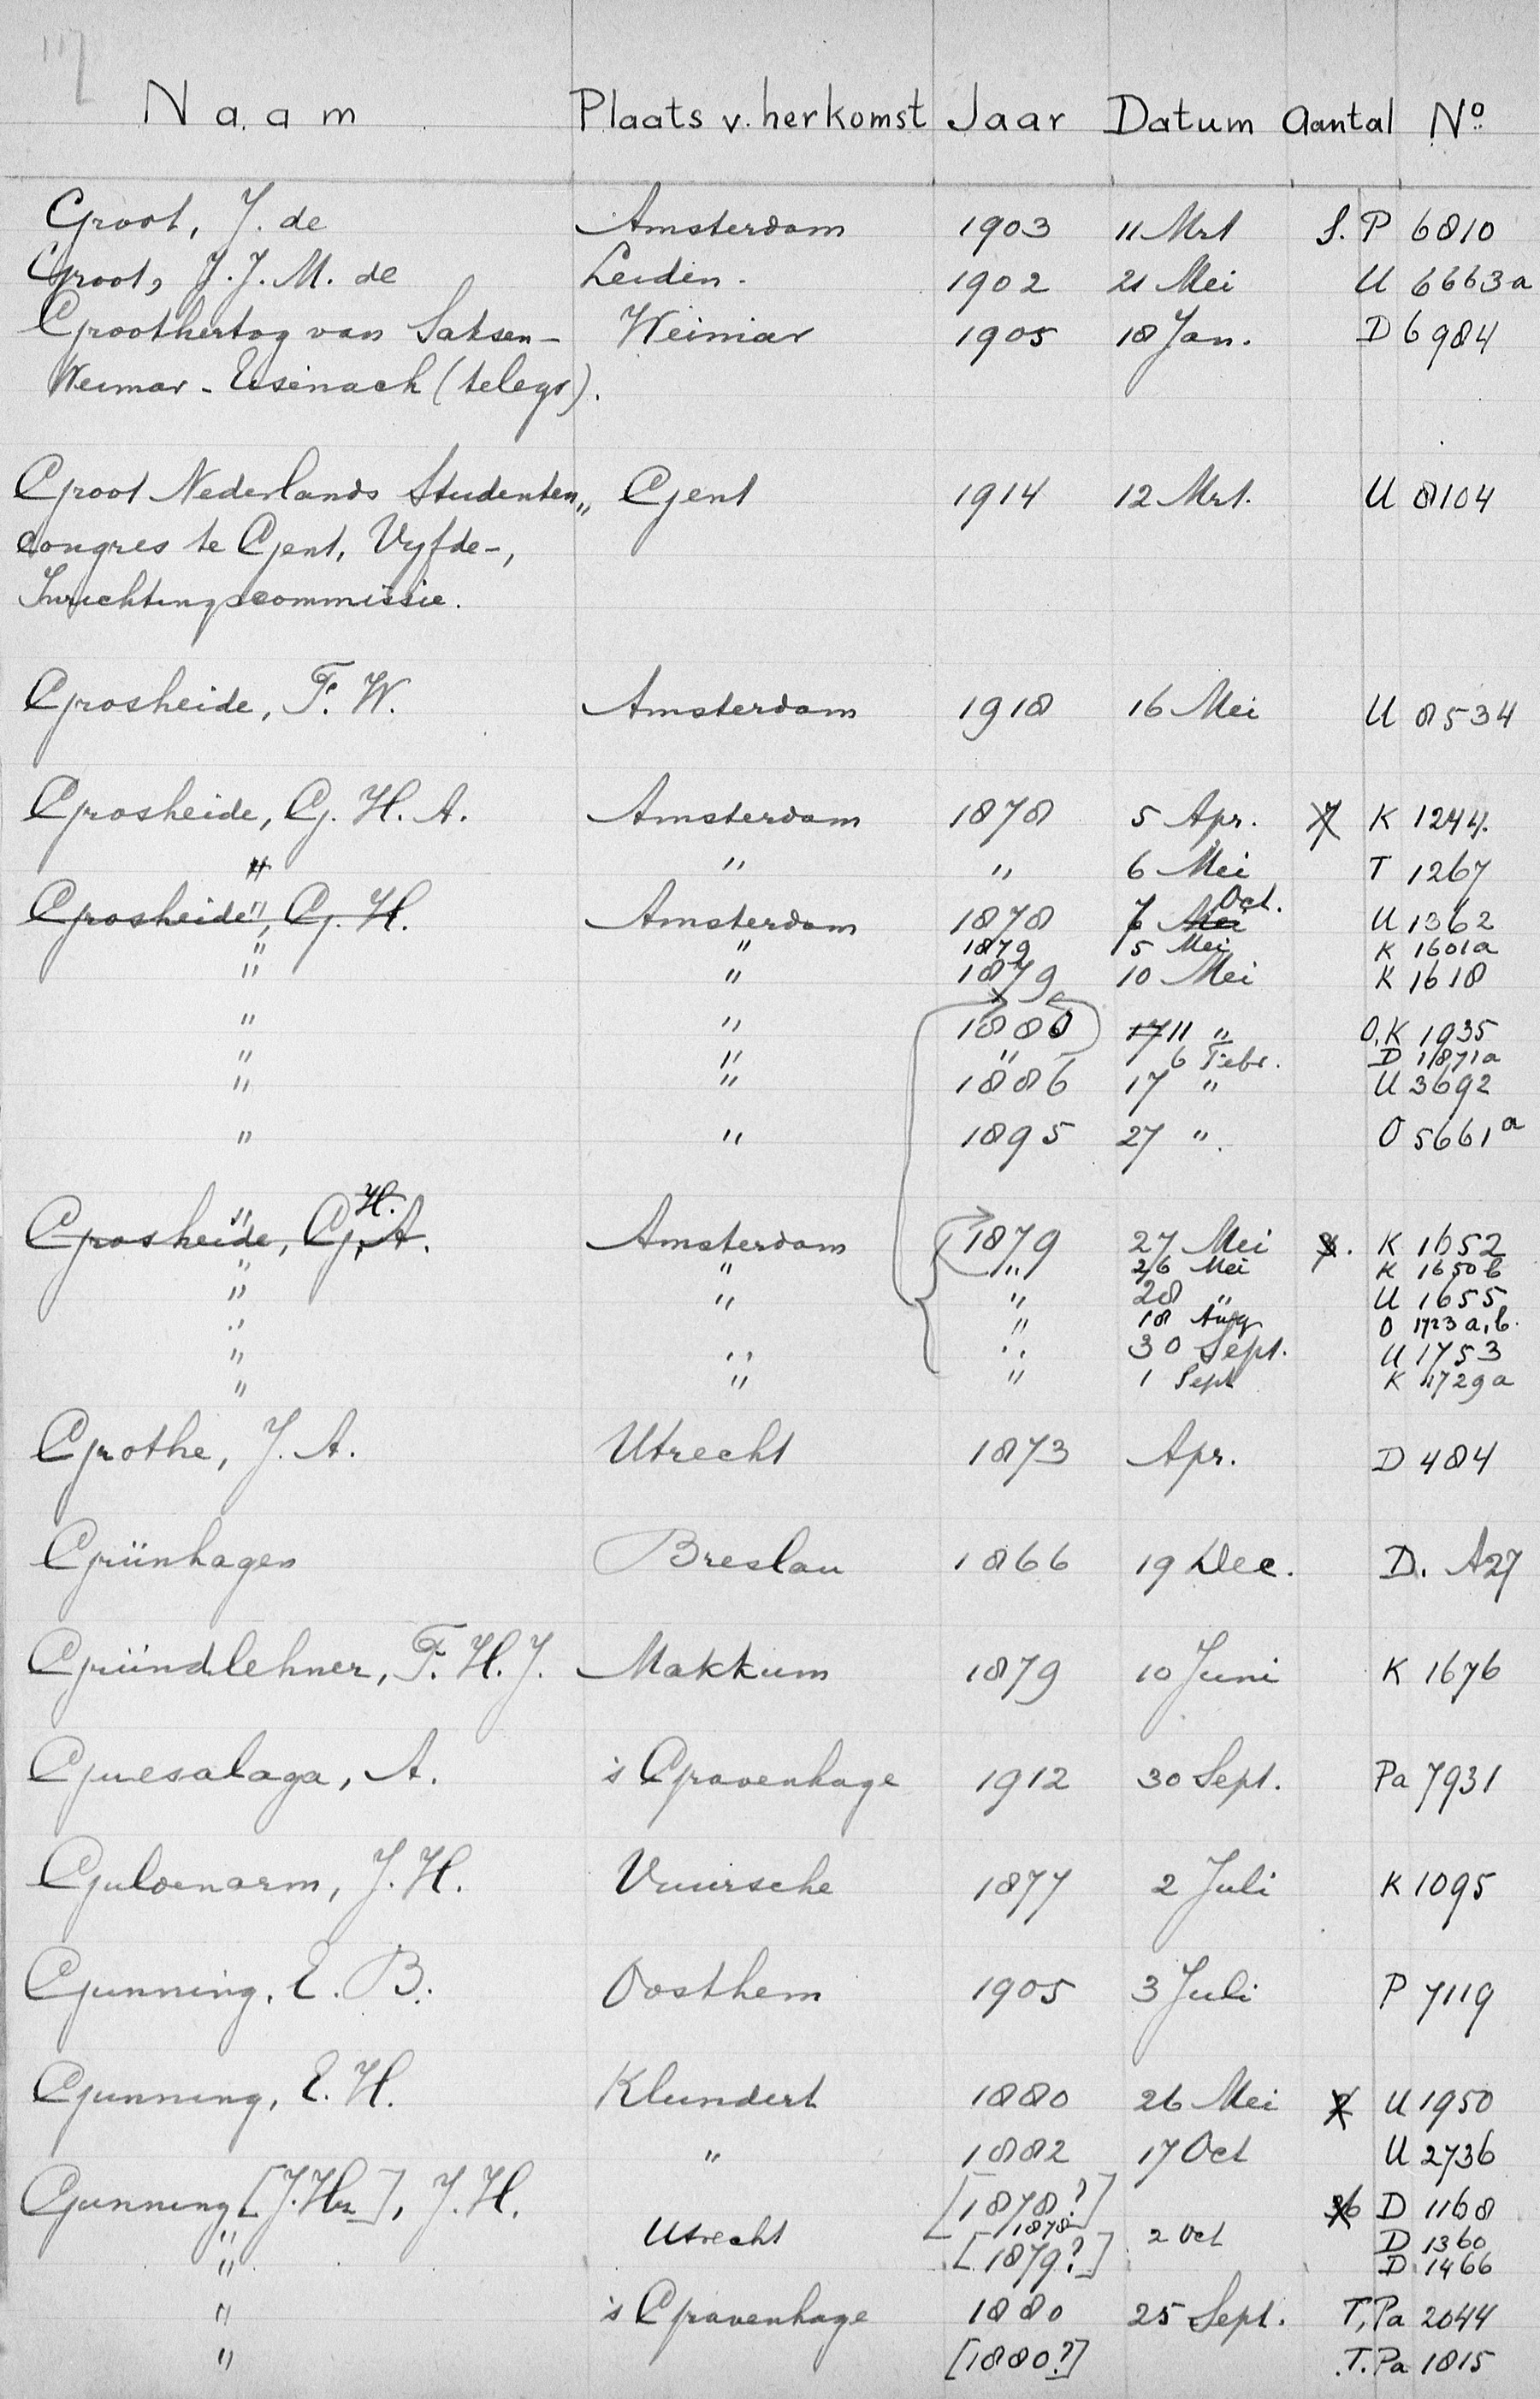 117
Naam Plaats v. herkomst Jaar Datum Aantal No
Groot, J. de Amsterdam 1903 11 Mrt S. P 6810
Groot, J. J. M. de Leiden. 1902 21 Mei U 6663a
Groothertog van Saksen- Weimar 1905 18 Jan. D 6984
Weimar-Eisenach (telegr).
Groot Nederlands Studenten„ Gent 1914 12 Mrt. U 8104
congres te Gent, Vyfde-,
Inrichtingscommissie.
Grosheide, F. W. Amsterdam 1918 16 Mei U 8534
Grosheide, G. H. A. Amsterdam 1878 5 Apr. 7 K 1244.
" " " 6 Mei T 1267
Grosheide", G. H. Amsterdam 1878 7 Mei Oct. U 1362
" " 1879 5 Mei K 1601a
" " 1879 10 Mei K 1618
" " 1880 17 11 " O,K 1935
" " " 6 Febr. D 1871a
" " 1886 17 " U 3692
" " 1895 27 " O 5661a
Grosheide, G. H. A. Amsterdam 1879 27 Mei K 1652
" " " 26 Mei K 1650b
" " " 28 " U 1655
" " 18 Aug O 1723 a, b.
" " " 30 Sept. U 1753
" " " 1 Sept K 1729a
Grothe, J. A. Utrecht 1873 Apr. D 484
Grünhagen Breslau 1866 19 Dec. D. A27
Gründlehner, F. H. J. Makkum 1879 10 Juni K 1676
Guesalaga, A. 's Gravenhage 1912 30 Sept. Pa 7931
Guldenarm, J. H. Vuursche 1877 2 Juli K 1095
Gunning, E. B. Oosthem 1905 3 Juli P 7119
Gunning, E. H. Klundert 1880 26 Mei 2 U 1950
" 1882 17 Oct U 2736
Gunning [J.Hz], J. H. [1878?] D 1168
" Utrecht 1878 2 Oct D 1360
" [1879?] D 1466
" 's Gravenhage 1880 25 Sept. T, Pa 2044
" [1880?] T. Pa 1815